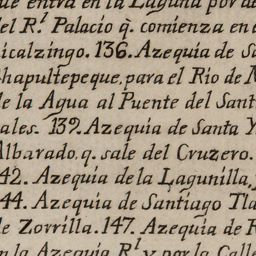 que entra en la Laguna por de
del R.l Palacio q̀. comienza en e
icalzingo. 136. Azequia de Sa
Chapultepeque, para el Rio de M
de la Agua al Puente del Sant
ales. 139. Azequia de Santa Y
Albarado, q. sale del Cruzero.
42. Azequia de la Lagunilla,
44. Azequia de Santiago Tla
de Zorrilla. 147. Azequia de R
en la Azequia R.l y por la Calle